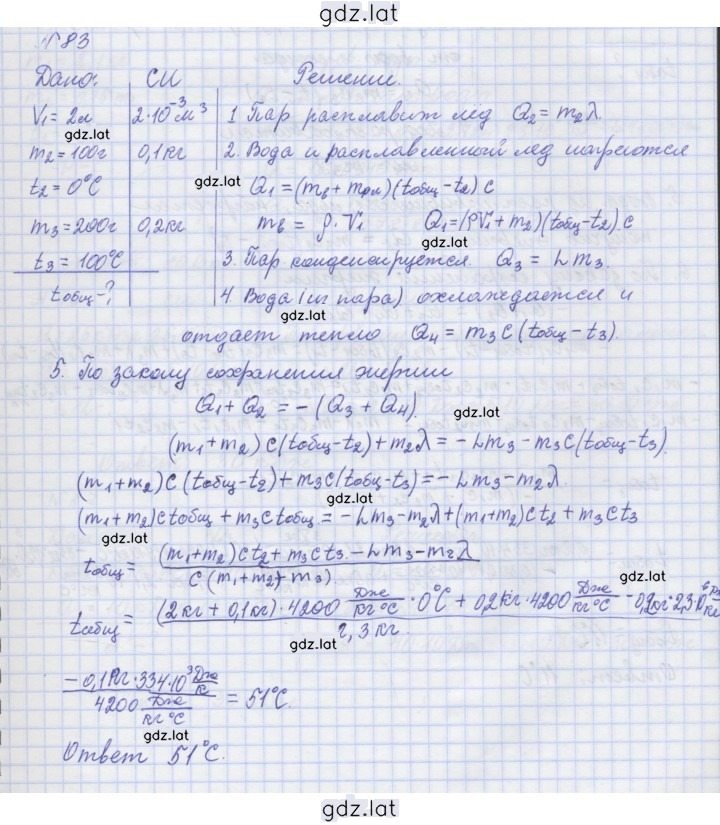 gdz.lat
№83
Дано: СИ Решение.
V₁ = 2л 2·10⁻³м³ 1 Пар расплавит лёд Q₂ = m₂λ
gdz.lat
m₂ = 100г 0,1кг 2. Вода и расплавленный лёд нагреются
t₂ = 0°C gdz.lat Q₁ = (mв + mрл)(tобщ - t₂)c
m₃ = 200г 0,2кг mв = ρ·V₁ Q₁ = (ρV₁ + m₂)(tобщ - t₂).c
gdz.lat
t₃ = 100°C 3. Пар конденсируется. Q₃ = Lm₃.
tобщ - ? 4. Вода (из пара) охлаждается и
gdz.lat
отдает тепло Q₄ = m₃c(tобщ - t₃).
5. По закону сохранения энергии
Q₁ + Q₂ = -(Q₃ + Q₄). gdz.lat
(m₁ + m₂)c(tобщ - t₂) + m₂λ = -Lm₃ - m₃c(tобщ - t₃).
(m₁ + m₂)c(tобщ - t₂) + m₃c(tобщ - t₃) = -Lm₃ - m₂λ
gdz.lat
(m₁ + m₂)ctобщ + m₃ctобщ = -Lm₃ - m₂λ + (m₁ + m₂)ct₂ + m₃ct₃
gdz.lat
tобщ = (m₁ + m₂)ct₂ + m₃ct₃ - Lm₃ - m₂λ
c(m₁ + m₂ + m₃)
gdz.lat
tобщ = (2кг + 0,1кг)·4200 Дж/кг°C · 0°C + 0,2кг·4200 Дж/кг°C - 0,2кг·2,3·10⁶
2,3 кг.
gdz.lat
- 0,1кг·334·10³ Дж/кг
4200 Дж/кг°C = 51°C.
gdz.lat
Ответ 51°C.
gdz.lat